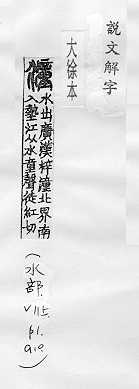 說文解字
大徐本
潼
水出廣漢梓潼北界南
入墊江从水童聲徒紅切
(水部